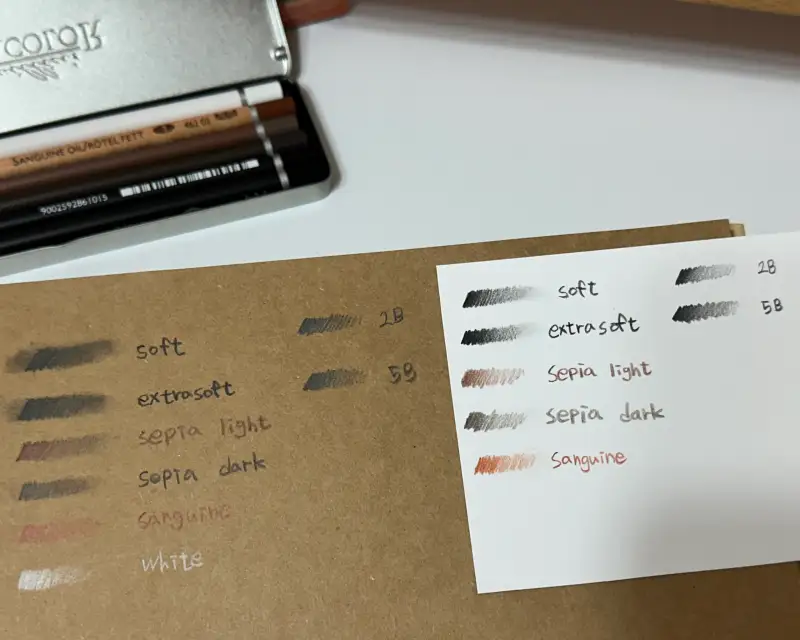 COLOR
SANGUINE OIL/RÖTEL FETT 2 462 02
9002592861015
soft
extrasoft
sepia light
sepia dark
sanguine
white
2B
5B
soft
extrasoft
sepia light
sepia dark
sanguine
2B
5B